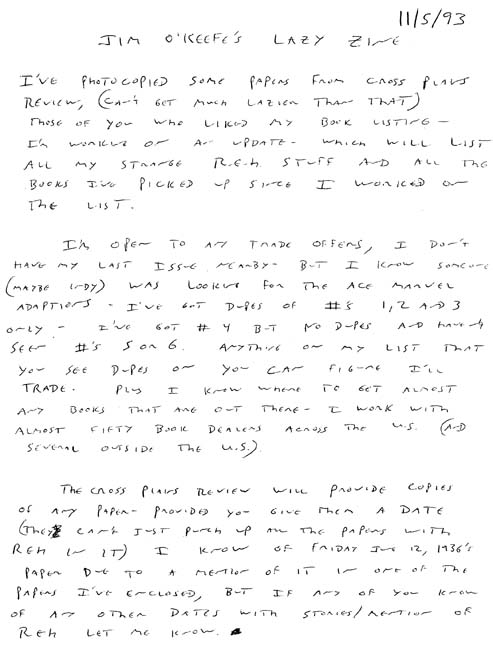 11/5/93
JIM O'KEEFE'S LAZY ZINE
I'VE PHOTOCOPIED SOME PAPERS FROM CROSS PLAINS
REVIEW, (CAN'T GET MUCH LAZIER THAN THAT)
THOSE OF YOU WHO LIKED MY BOOK LISTING -
I'M WORKING ON AN UPDATE - WHICH WILL LIST
ALL MY STRANGE R.E.H. STUFF AND ALL THE
BOOKS I'VE PICKED UP SINCE I WORKED ON
THE LIST.
I'M OPEN TO ANY TRADE OFFERS, I DON'T
HAVE MY LAST ISSUE NEARBY - BUT I KNOW SOMEONE
(MAYBE INDY) WAS LOOKING FOR THE ACE MARVEL
ADAPTIONS - I'VE GOT DUPES OF #'S 1, 2 AND 3
ONLY - I'VE GOT #4 BUT NO DUPES AND HAVEN'T
SEEN #'S 5 OR 6. ANYTHING ON MY LIST THAT
YOU SEE DUPES OR YOU CAN FIGURE I'LL
TRADE. PLUS I KNOW WHERE TO GET ALMOST
ANY BOOKS THAT ARE OUT THERE - I WORK WITH
ALMOST FIFTY BOOK DEALERS ACROSS THE U.S. (AND
SEVERAL OUTSIDE THE U.S.).
THE CROSS PLAINS REVIEW WILL PROVIDE COPIES
OF ANY PAPER - PROVIDED YOU GIVE THEM A DATE
(THEY CAN'T JUST PUNCH UP ALL THE PAPERS WITH
REH IN IT) I KNOW OF FRIDAY JUNE 12, 1936'S
PAPER DUE TO A MENTION OF IT IN ONE OF THE
PAPERS I'VE ENCLOSED, BUT IF ANY OF YOU KNOW
OF ANY OTHER DATES WITH STORIES/MENTION OF
REH LET ME KNOW.